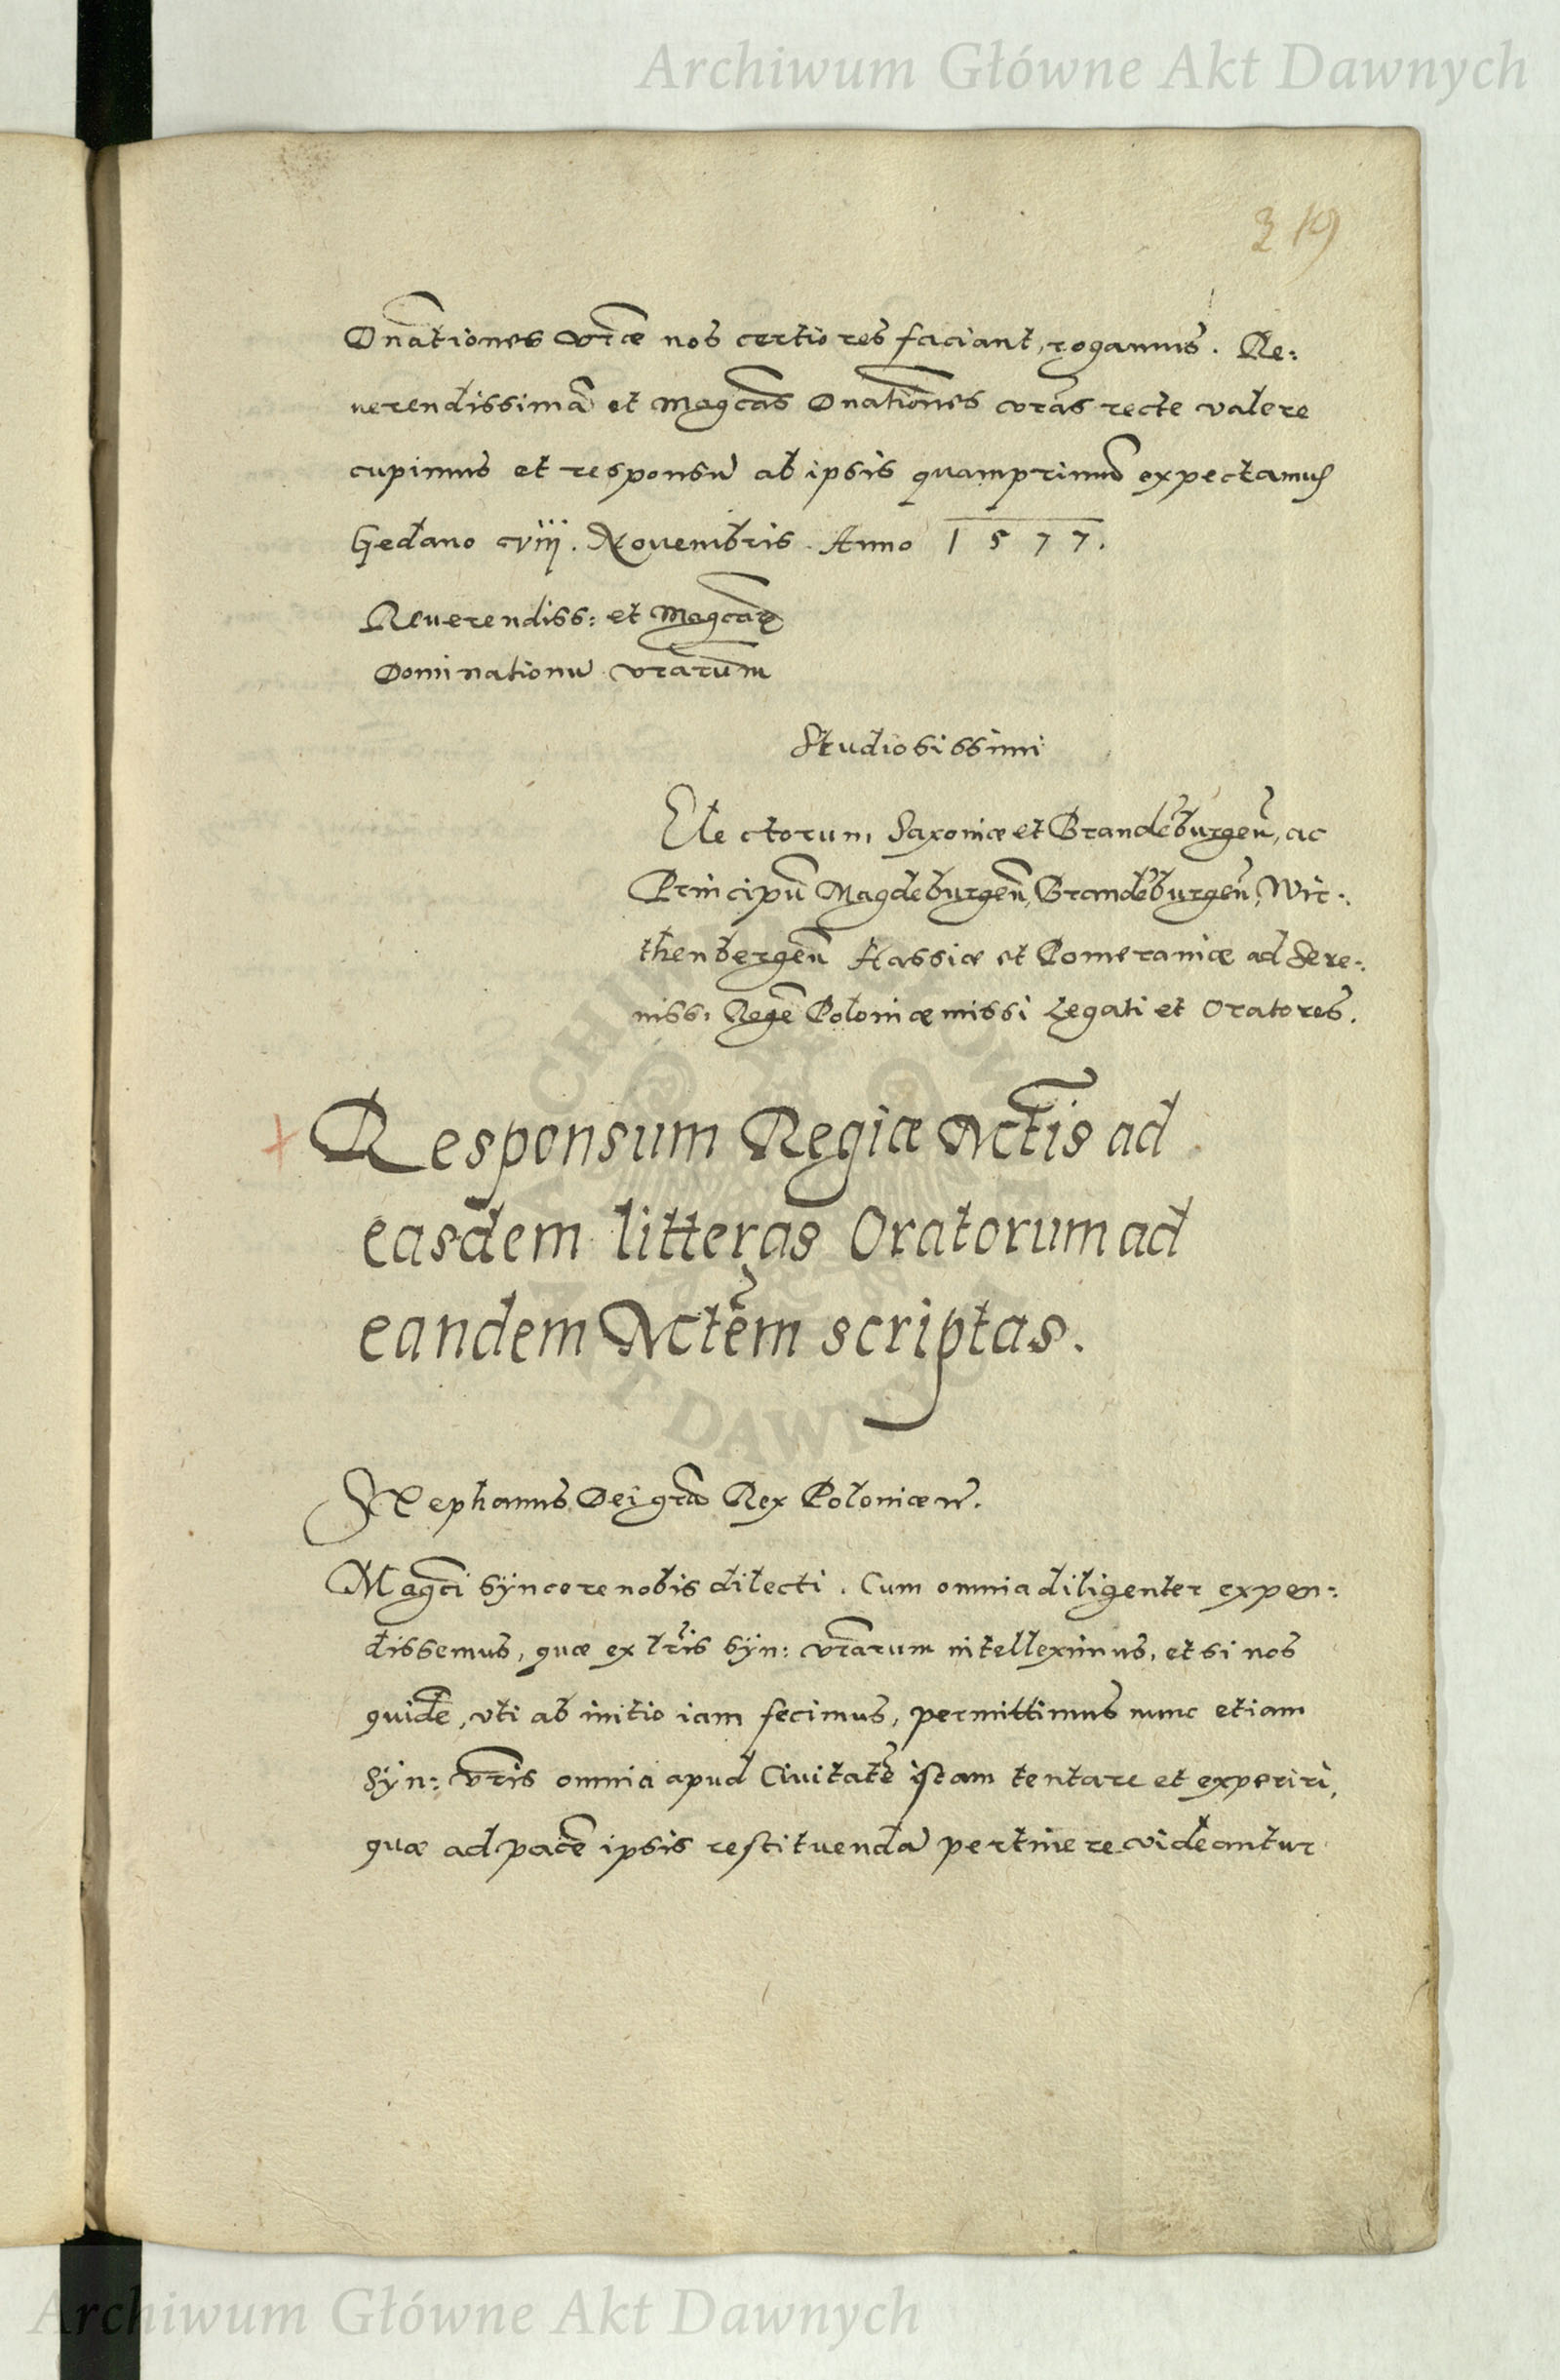 Archiwum Główne Akt Dawnych
219
Dnātiones vrāe nos certiores faciant, rogamus. Re:
uerendissimā et Magcās Dnātiones vrās recte valere
cupimus et responsū ab ipsis quamprimū expectamus
Gedano cviij. Nouembris. Anno 1577.
Reuerendiss: et Magcārū
Dominationū vrārum
Studiosissimi
Electorum, Saxoniæ et Brandēburgeñ, ac
Principū Magdeburgeñ, Brandēburgeñ, Wir:
thenbergeñ Hassiæ et Pomeraniæ ad Sere:
niss: Regē Poloniæ missi Legati et Oratores.
Responsum Regiæ Mctis ad
easdem litteras Oratorum ad
eandem Mctem scriptas.
Stephanus Dei grā Rex Poloniæ
Magci syncere nobis dilecti. Cum omnia diligenter expen:
dissemus, quæ ex lrīs Syn: vrārum intelleximus, et si nos
quidē, vti ab initio iam fecimus, permittimus nunc etiam
Syn: vrīs omnia apud Ciuitatē istam tentare et experiri,
quæ ad pacē ipsis restituendā pertinere videantur
ARCHIWUM GŁÓWNE AKT DAWNYCH
Archiwum Główne Akt Dawnych